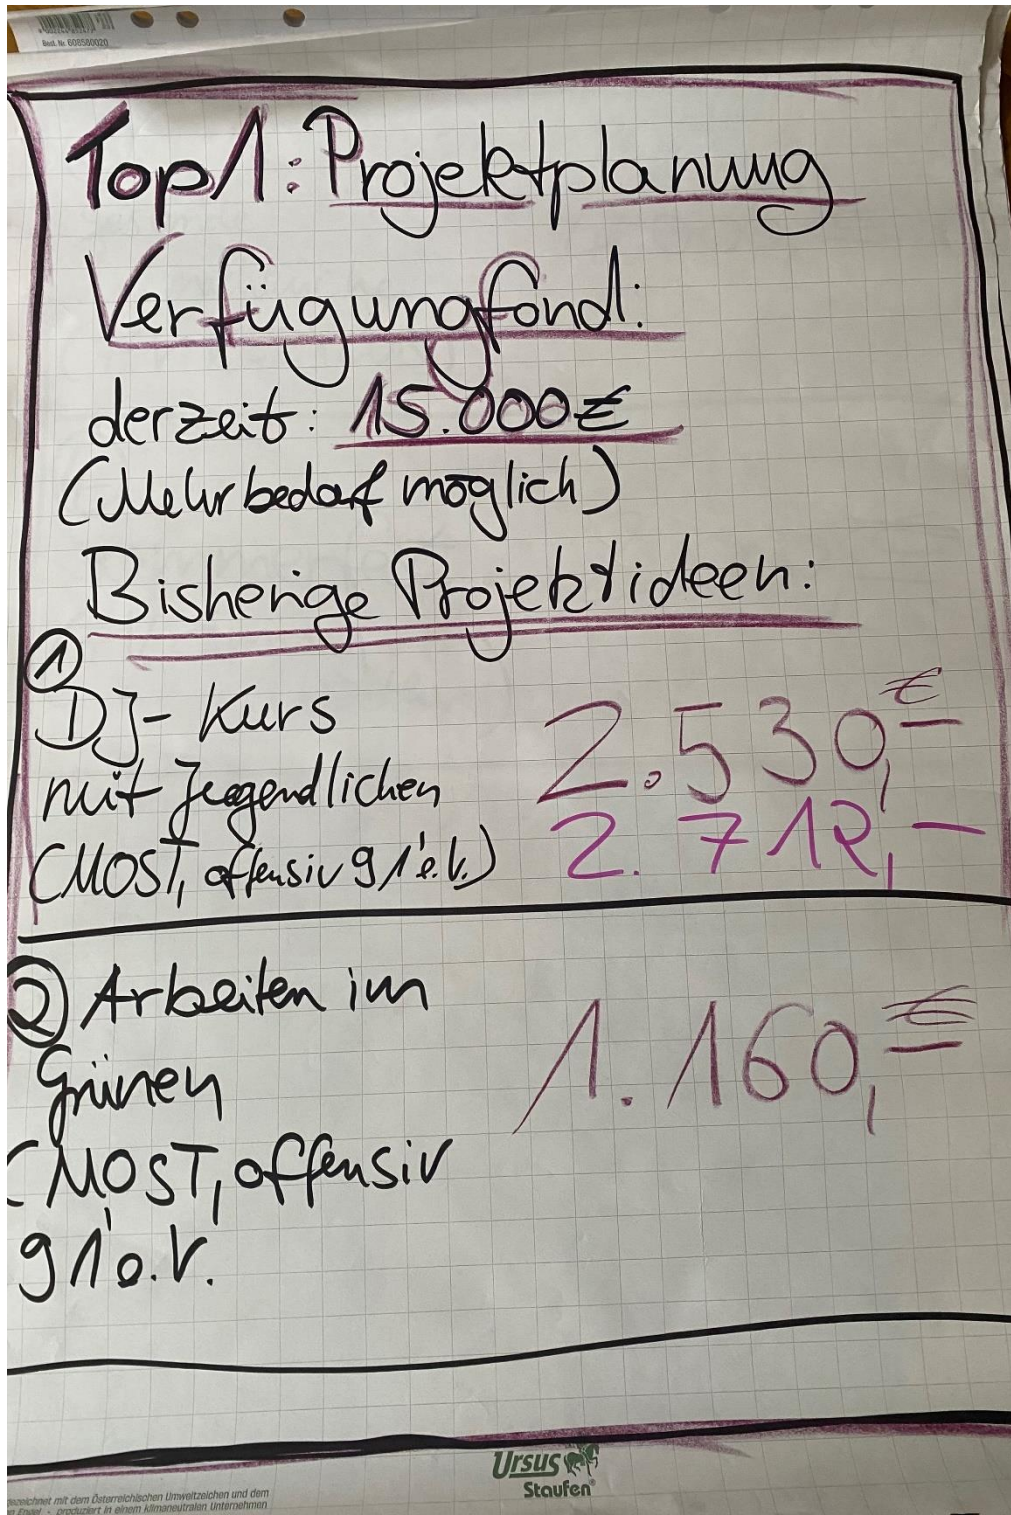 Best. Nr. 608580020
Top 1: Projektplanung
Verfügungfond:
derzeit: 15.000€
(Mehrbedarf möglich)
Bisherige Projektideen:
1
DJ-Kurs
mit Jugendlichen
(MOST, offensiv 91 e.V.)
2.530,- €
2.712,-
2 Arbeiten im
Grünen
(MOST, offensiv
91 e.V.
1.160,- €
Ursus
Staufen
ezeichnet mit dem Österreichischen Umweltzeichen und dem
n Engel • produziert in einem klimaneutralen Unternehmen